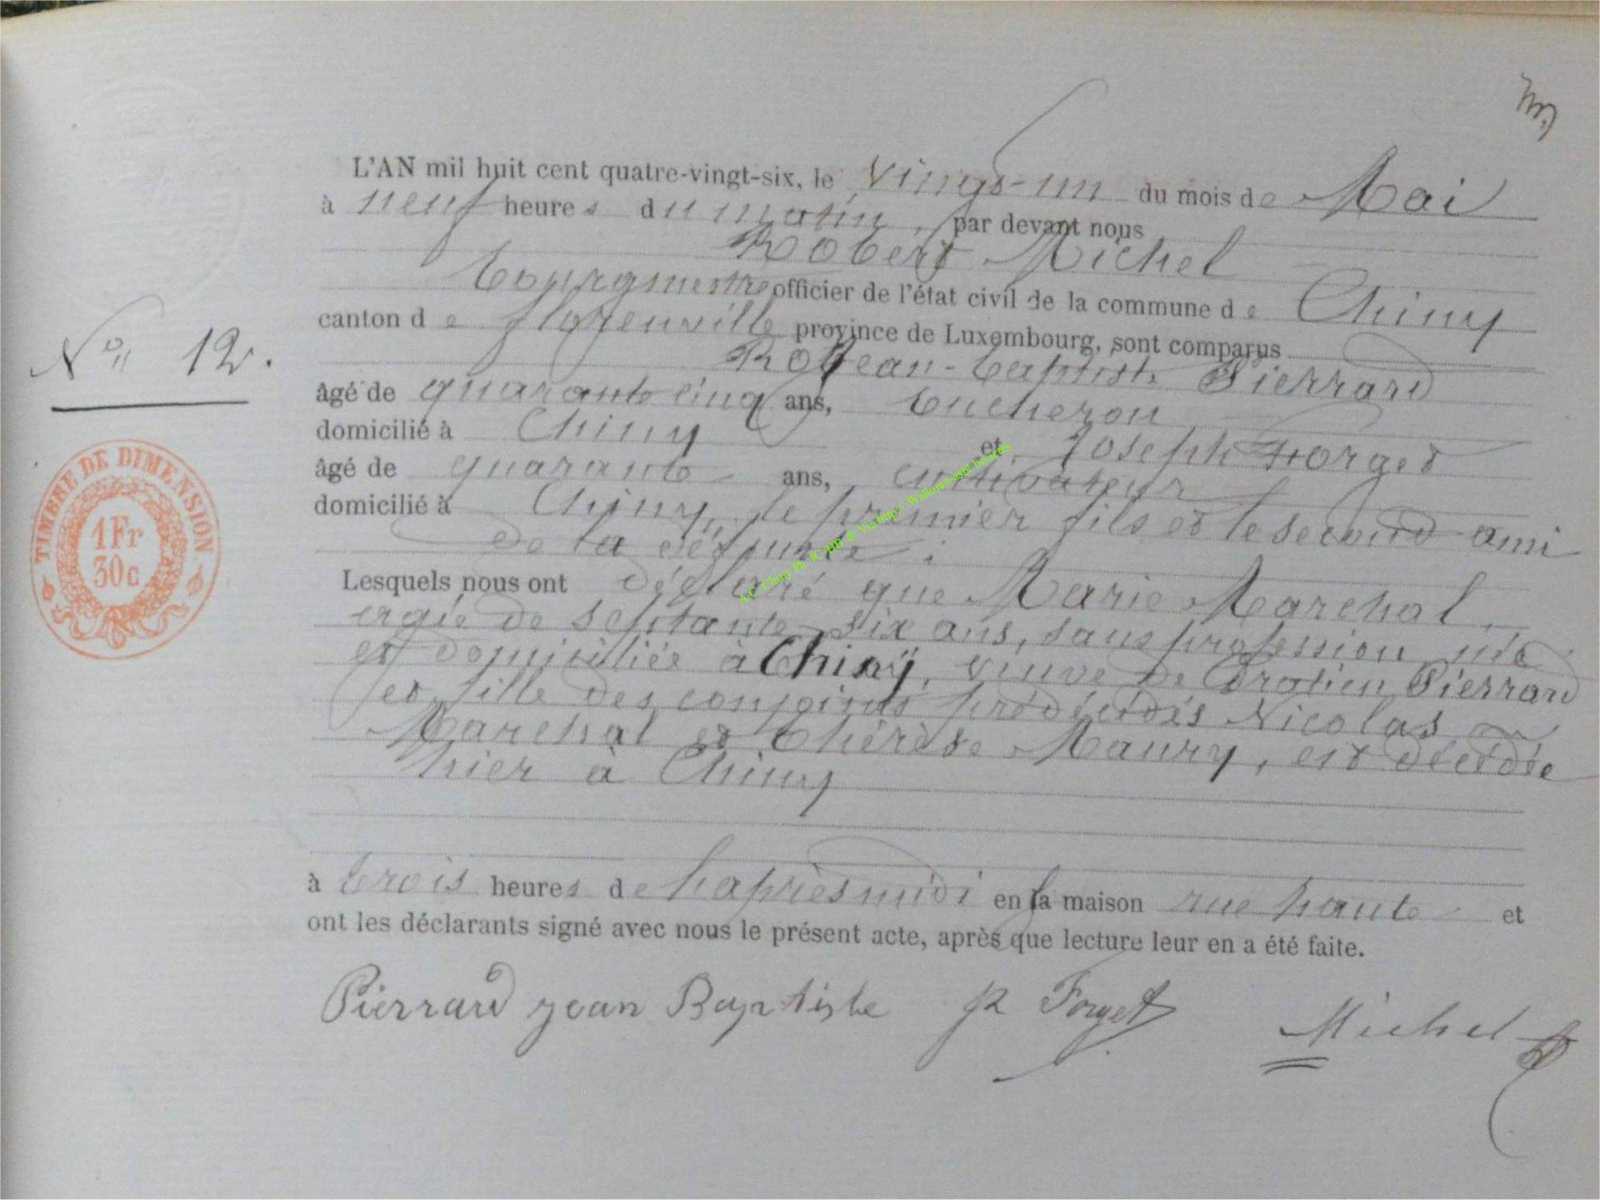 L'AN mil huit cent quatre-vingt-six, le vingt-un du mois de Mai
à neuf heures du matin, par devant nous
Robert Michel
bourgmestre officier de l'état civil de la commune de Chiny
canton de florenville province de Luxembourg, sont comparus
Jean-baptiste Pierrard
âgé de quarante cinq ans, bucheron
domicilié à Chiny et Joseph Forget
âgé de quarante ans, cultivateur
domicilié à Chiny, le premier fils et le second ami
de la défunte ;
Lesquels nous ont déclaré que Marie Marchal,
agée de septante-six ans, sans profession, née
et domiciliée à Chiny, veuve de Gratien Pierrard
et fille des conjoints prédécédés Nicolas
Marchal et Thérèse Maury, est décédée
hier à Chiny
à trois heures de l'après midi en sa maison rue haute et
ont les déclarants signé avec nous le présent acte, après que lecture leur en a été faite.
Nº 12.
TIMBRE DE DIMENSION
1 Fr
30 c
Pierrard jean Baptiste Forget Michel